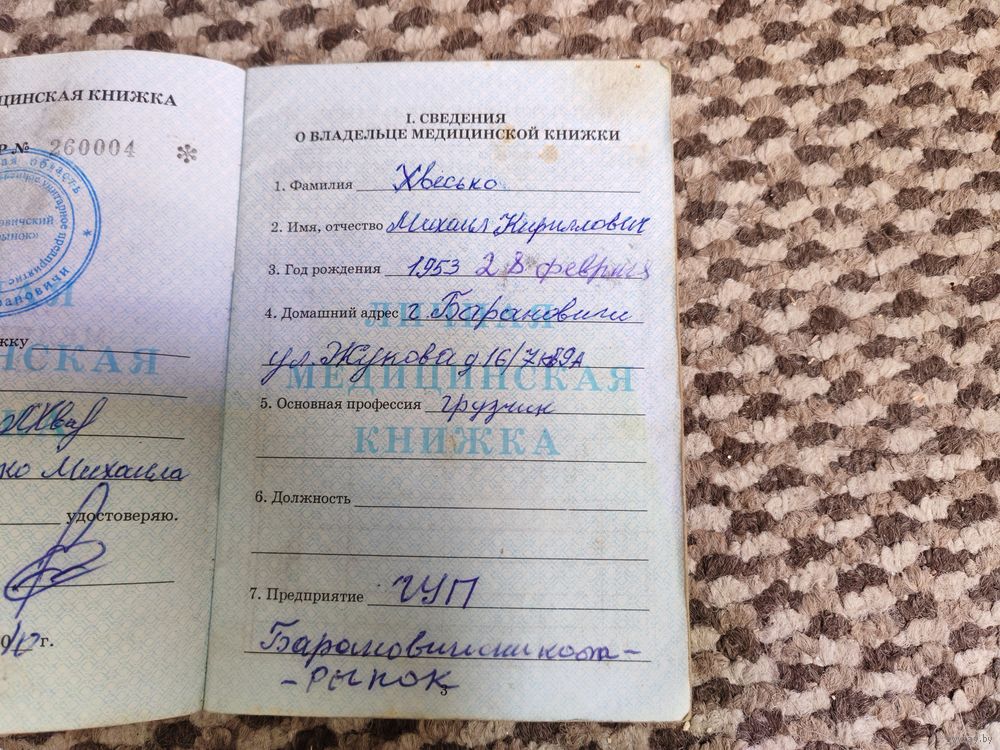 ЦИНСКАЯ КНИЖКА
Р.№ 260004 *
ая область
овичский
рынок»
ЖКУ
НСКАЯ
ко Михаила
удостоверяю.
г.
I. СВЕДЕНИЯ
О ВЛАДЕЛЬЦЕ МЕДИЦИНСКОЙ КНИЖКИ
1. Фамилия Хвесько
2. Имя, отчество Михаил Кириллович
3. Год рождения 1953 28 февраля
4. Домашний адрес г. Барановичи
ул. Жукова д 16/7 кв 89А
ЛИЧНАЯ
МЕДИЦИНСКАЯ
КНИЖКА
5. Основная профессия грузчик
6. Должность
7. Предприятие ГУП
Барановичский кооп-
-рынок
3